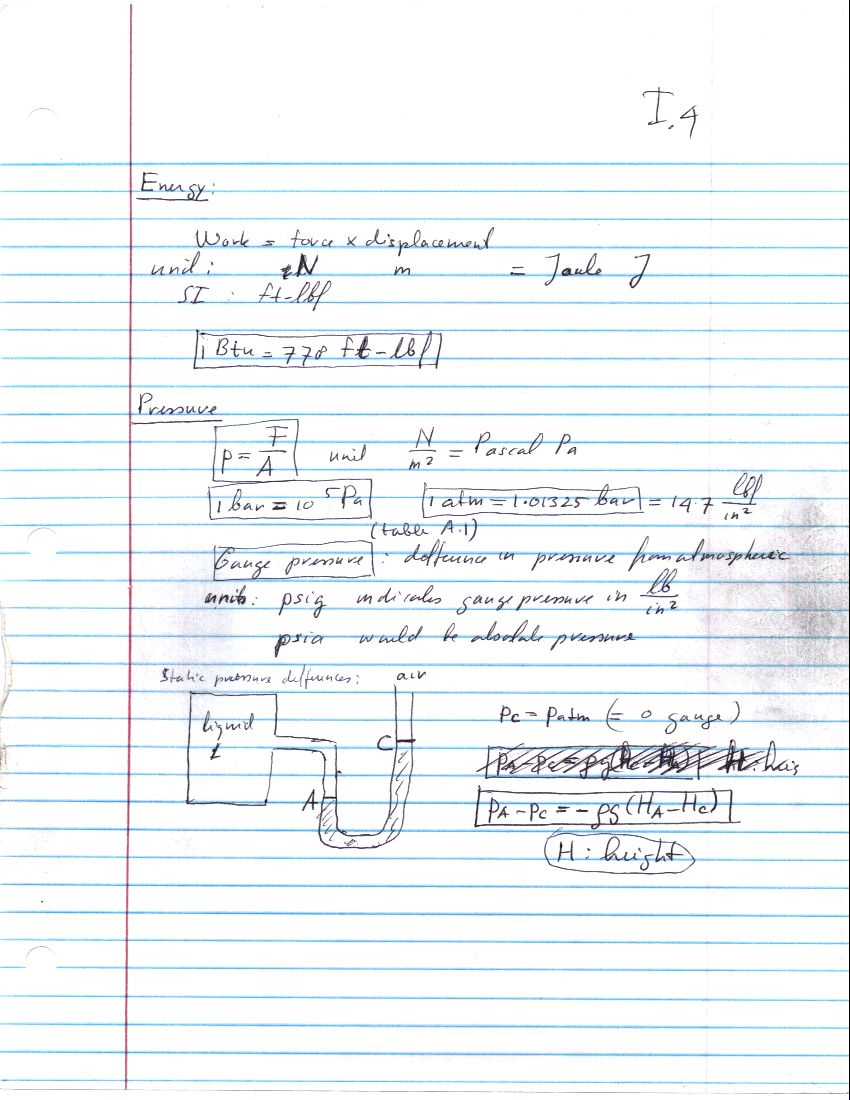 I.4
Energy:
Work = force × displacement
unit: N m = Joule J
SI : ft-lbf
1 Btu = 778 ft-lbf
Pressure
p = F/A unit N/m² = Pascal Pa
1 bar = 10⁵ Pa 1 atm = 1.01325 bar = 14.7 lbf/in²
(table A.1)
Gauge pressure : difference in pressure from atmospheric
units: psig indicates gauge pressure in lb/in²
psia would be absolute pressure
Static pressure differences: air
liquid
C
A
Pc = Patm (= 0 gauge)
PA - Pc = -ρg(HA - Hc)
H: height